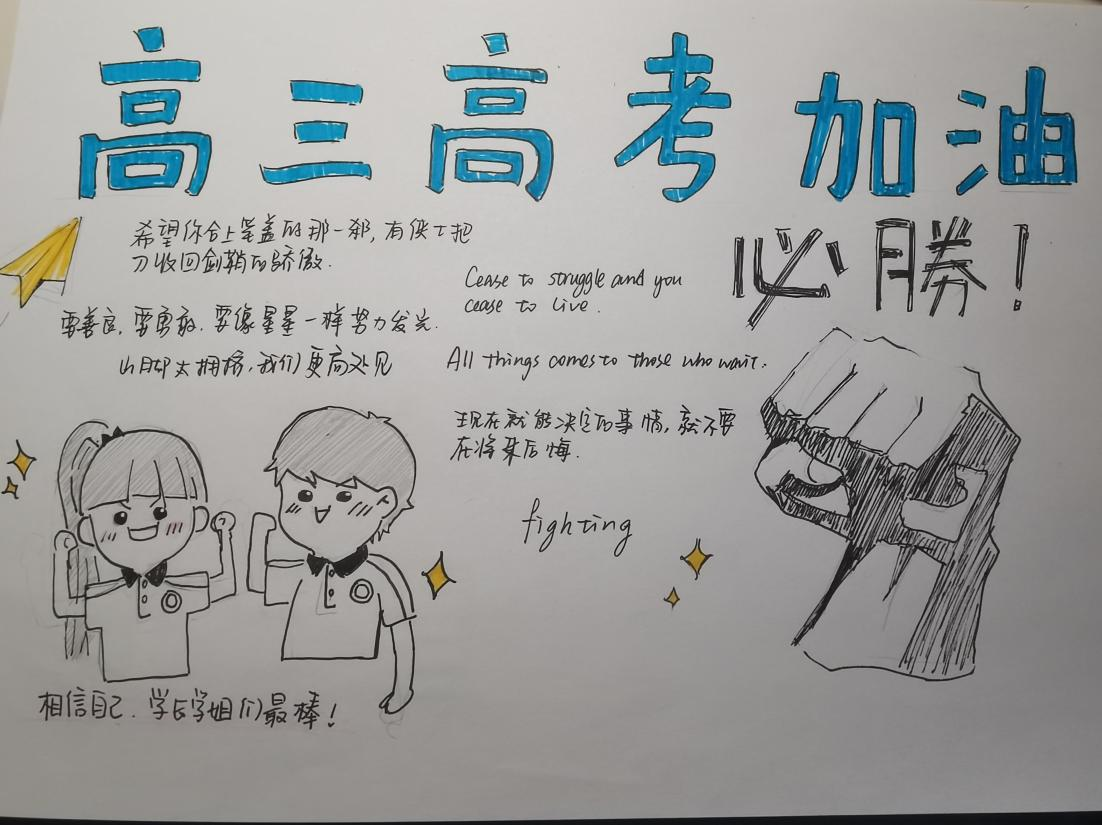 高三高考加油
必勝！
希望你合上笔盖的那一刹，有侠士把
刀收回剑鞘的骄傲.
Cease to struggle and you
cease to live.
要善良，要勇敢，要像星星一样努力发光.
山脚太拥挤，我们更高处见
All things comes to those who wait.
现在就能决定的事情，就不要
在将来后悔.
fighting
相信自己，学长学姐们最棒！